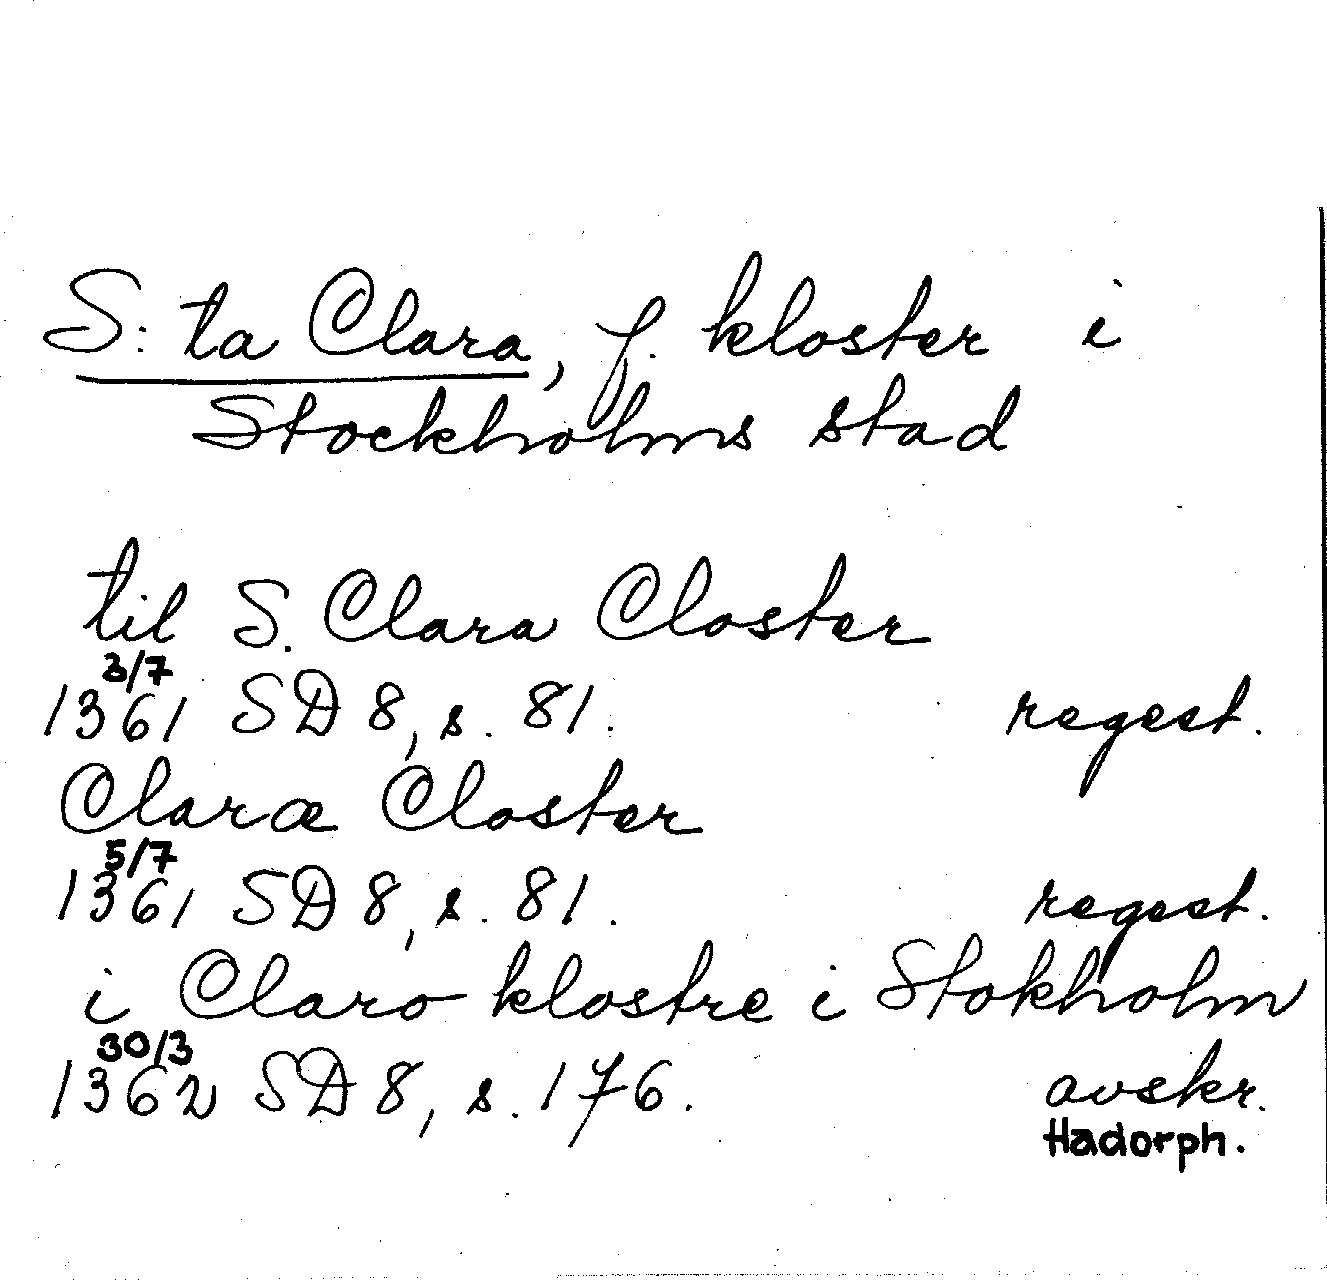 S:ta Clara, f. kloster i
Stockholms stad
til S. Clara Closter
3/7
1361 SD 8, s. 81. regest.
Claræ Closter
5/7
1361 SD 8, s. 81. regest.
i Claro klostre i Stokholm
30/3
1362 SD 8, s. 176. avskr.
Hadorph.